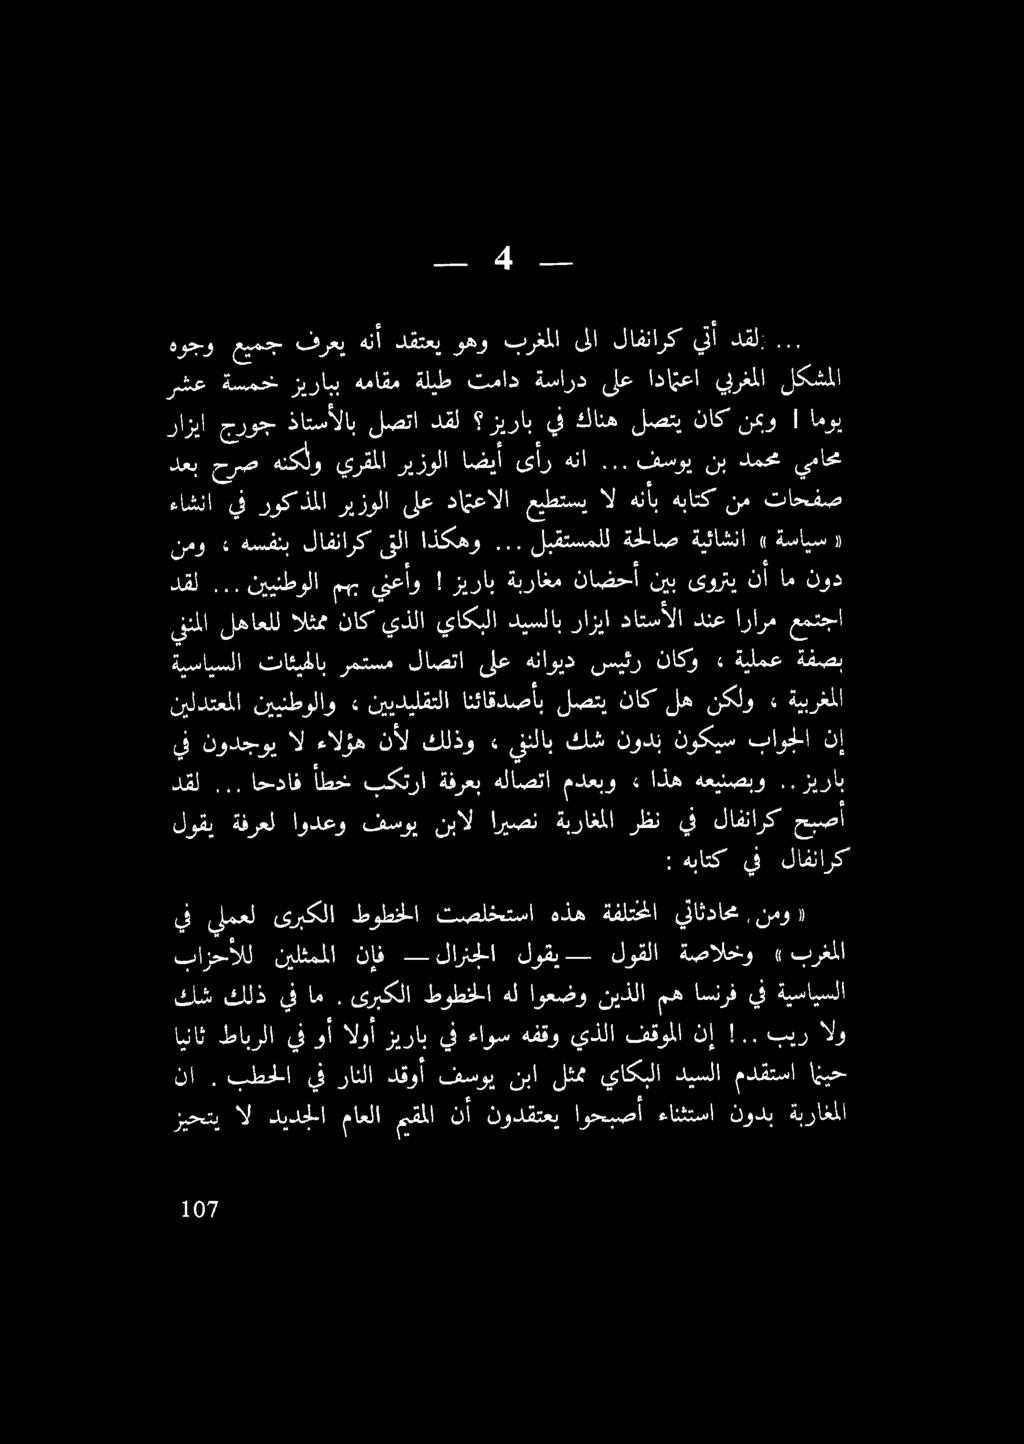 — 4 —
... لقد أتي كرانفال الى المغرب وهو يعتقد أنه يعرف جميع وجوه
المشكل المغربي اعتمادا على دراسة دامت طيلة مقامه بباريز خمسة عشر
يوما ! وبمن كان يتصل هناك في باريز ؟ لقد اتصل بالأستاذ جورج ايزار
محامي محمد بن يوسف ... انه رأى أيضا الوزير المقري ولكنه صرح بعد
صفحات من كتابه بأنه لا يستطيع الاعتماد على الوزير المذكور في انشاء
« سياسة » انشائية صالحة للمستقبل ... وهكذا القى كرانفال بنفسه ، ومن
دون ما أن يتروى بين أحضان مغاربة باريز ! وأعني بهم الوطنيين ... لقد
اجتمع مرارا عند الأستاد ايزار بالسيد البكاي الذي كان ممثلا للعاهل المنفي
بصفة عملية ، وكان رئيس ديوانه على اتصال مستمر بالهيئات السياسية
المغربية ، ولكن هل كان يتصل بأصدقائنا التقليديين ، والوطنيين المعتدلين
إن الجواب سيكون بدون شك بالنفي ، وذلك لأن هؤلاء لا يوجدون في
باريز .. وبصنيعه هذا ، وبعدم اتصاله بعرفة ارتكب خطأ فادحا ... لقد
أصبح كرانفال في نظر المغاربة نصيرا لابن يوسف وعدوا لعرفة يقول
كرانفال في كتابه :
« ومن محادثاتي المختلفة هذه استخلصت الخطوط الكبرى لعملي في
المغرب » وخلاصة القول — يقول الجنرال — فإن الممثلين للأحزاب
السياسية في فرنسا هم الذين وضعوا له الخطوط الكبرى . ما في ذلك شك
ولا ريب .. ! إن الموقف الذي وقفه سواء في باريز أولا أو في الرباط ثانيا
حينما استقدم السيد البكاي ممثل ابن يوسف أوقد النار في الحطب . ان
المغاربة بدون استثناء أصبحوا يعتقدون أن المقيم العام الجديد لا يتحيز
107